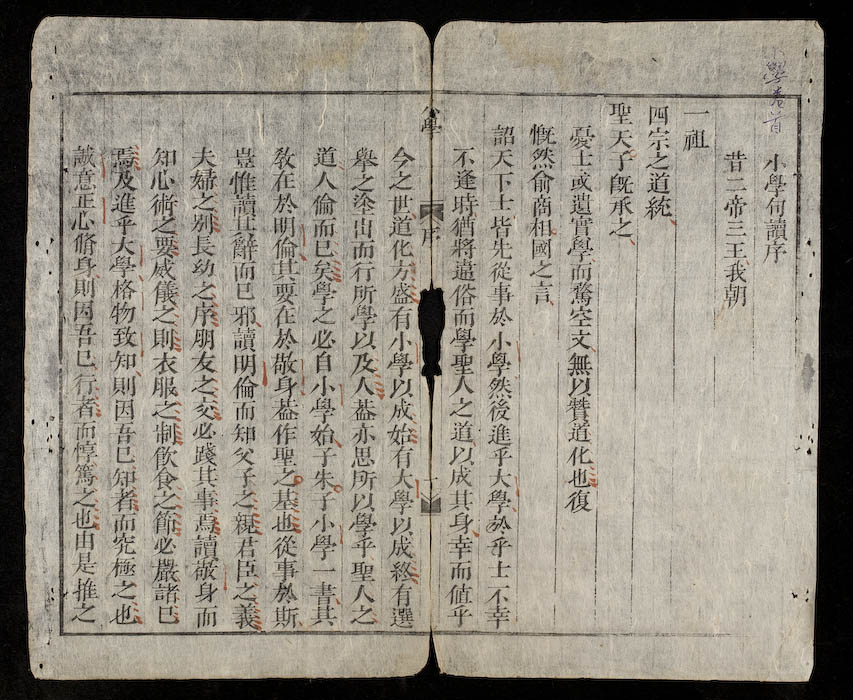 小學卷首
小學句讀序
昔二帝三王我朝
一祖
四宗之道統
聖天子旣承之
憂士或遺實學而騖空文無以贊道化也復
慨然俞商相國之言
詔天下士皆先從事於小學然後進乎大學於乎士不幸
不逢時猶將違俗而學聖人之道以成其身幸而値乎
小學
序
今之世道化方盛有小學以成始有大學以成終有選
舉之塗出而行所學以及人葢亦思所以學乎聖人之
道人倫而已矣學之必自小學始子朱子小學一書其
敎在於明倫其要在於敬身葢作聖之基也從事於斯
豈惟讀其辭而已邪讀明倫而知父子之親君臣之義
夫婦之别長幼之序朋友之交必踐其事焉讀敬身而
知心術之要威儀之則衣服之制飮食之節必嚴諸已
焉及進乎大學格物致知則因吾已知者而究極之也
誠意正心脩身則因吾已行者而惇篤之也由是推之